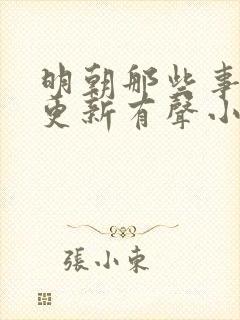 明朝那些事
更新有聲小
張小東